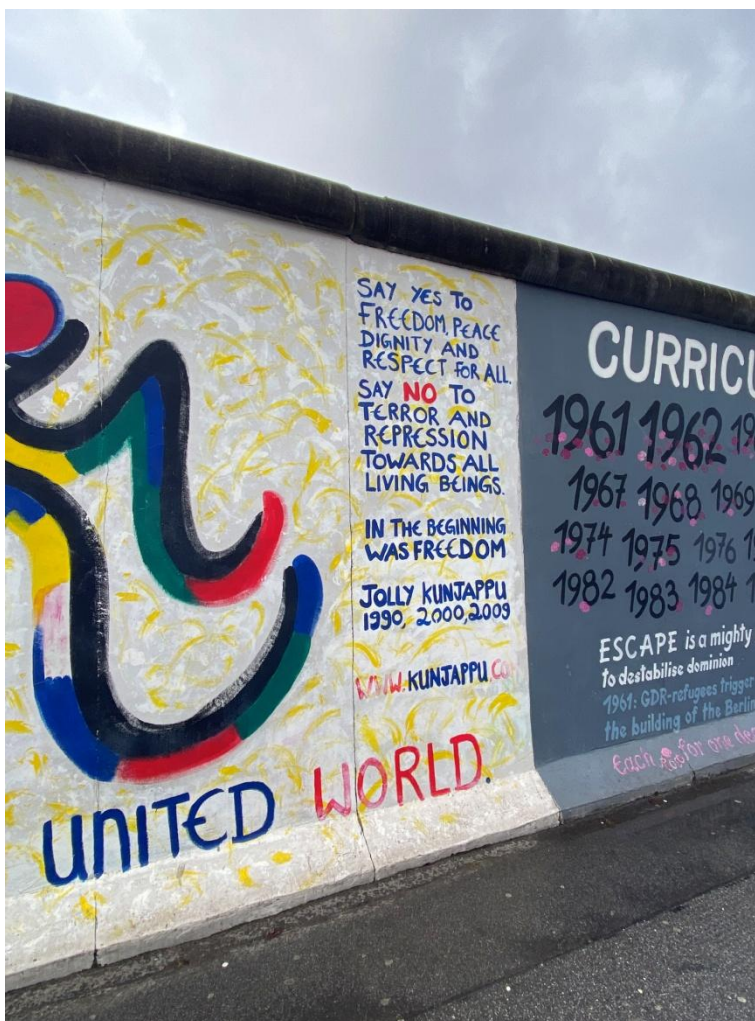 SAY YES TO
FREEDOM, PEACE
DIGNITY AND
RESPECT FOR ALL.
SAY NO TO
TERROR AND
REPRESSION
TOWARDS ALL
LIVING BEINGS.
IN THE BEGINNING
WAS FREEDOM
JOLLY KUNJAPPU
1990, 2000, 2009
WWW.KUNJAPPU.CO
UNITED WORLD.
CURRICU
1961 1962 19
1967 1968 1969
1974 1975 1976 1
1982 1983 1984
ESCAPE is a mighty
to destabilise dominion
1961: GDR-refugees trigger
the building of the Berlin
Each for one